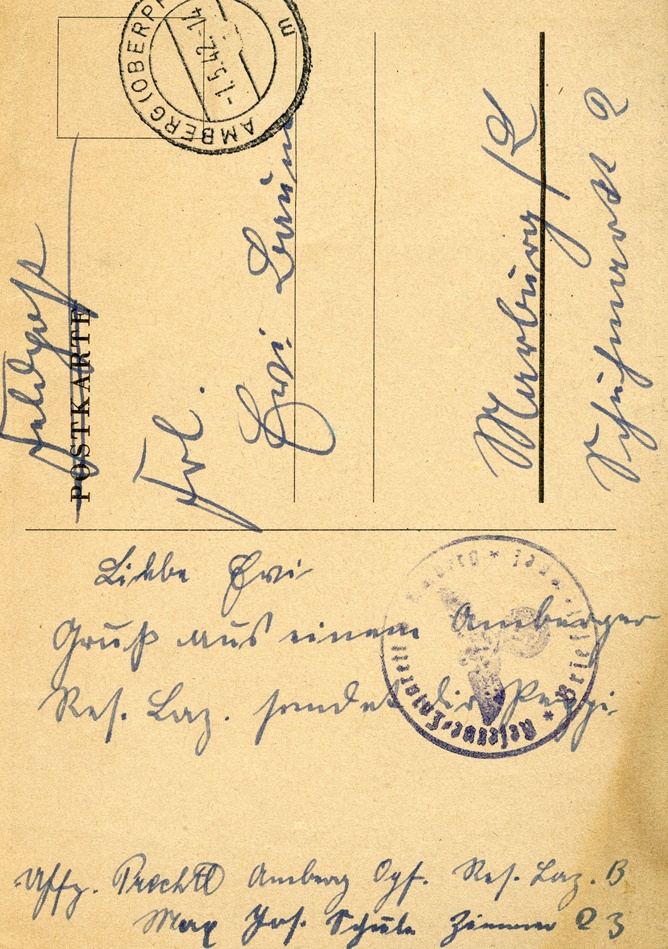 AMBERG (OBERPF
-1.5.42.-14
m
POSTKARTE
Feldpost
Frl.
Evi Baum
Marburg/L
Schuhmarkt 2
Liebe Evi
Gruß aus einem Amberger
Res. Laz. sendet dir Peppi.
Reserve-Lazarett Amberg * * Briefstempel
Uffz. Prechtl Amberg Opf. Res. Laz. B
Max Jos. Schule Zimmer 23